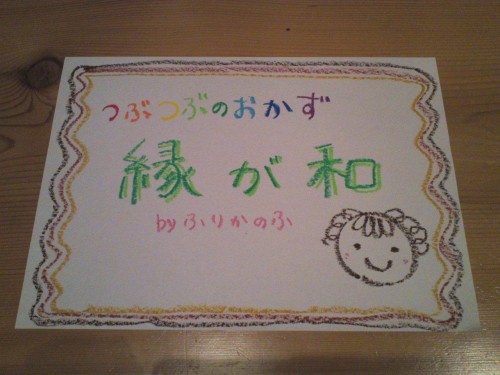 つぶつぶのおかず
縁が和
by ふりかのふ